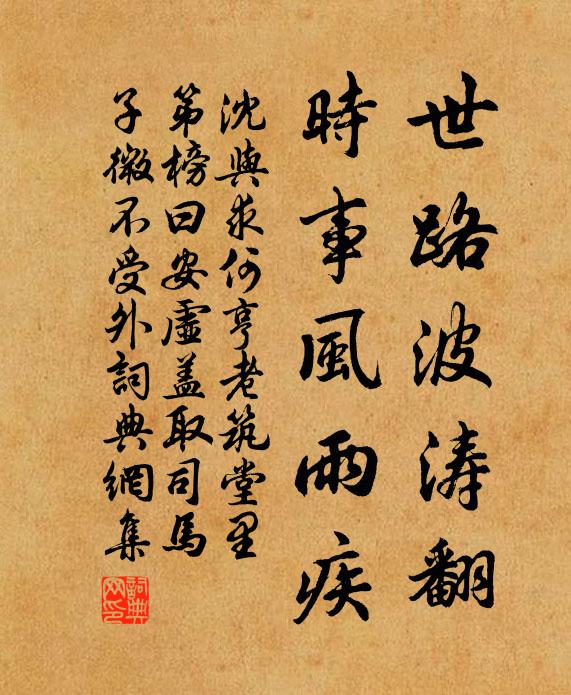 世路波涛翻
時事風雨疾
沈與求何亨老筑堂里
第榜曰安虛盖取司馬
子微不受外詞典網集
詞典網印